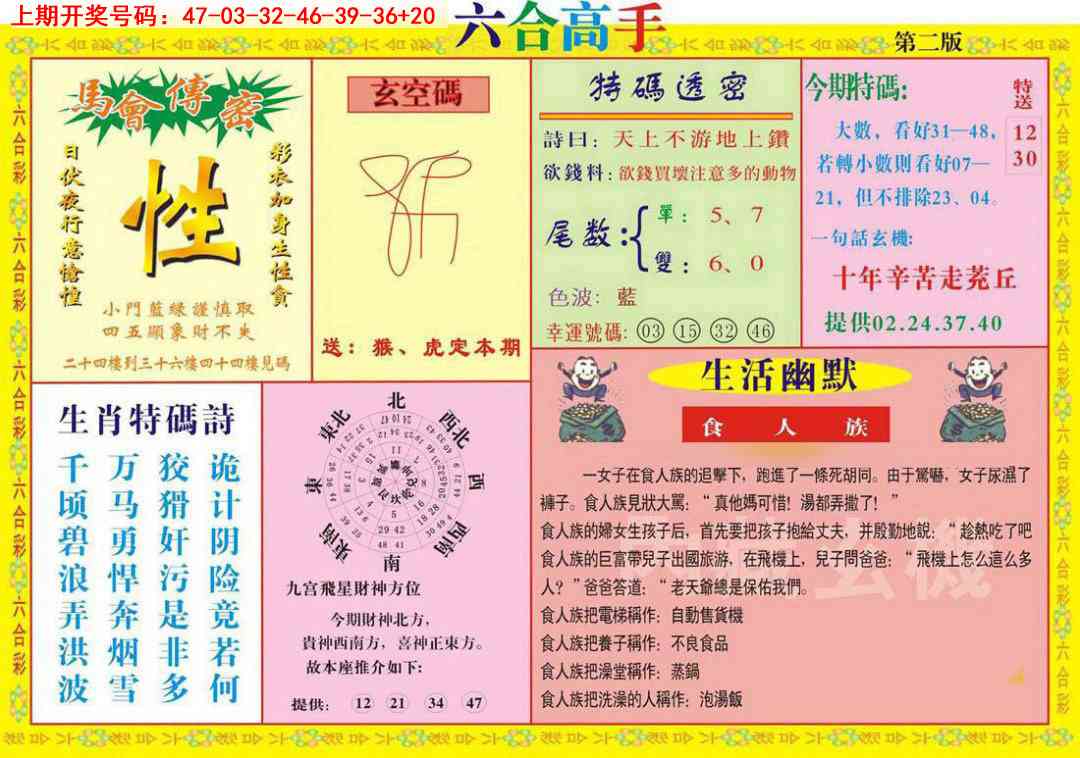 上期开奖号码：47-03-32-46-39-36+20
六合高手
第二版
馬會傳密
日伏夜行意愴惶
性
彩衣加身生性貪
小門藍緑謹慎取
四五顯象財不失
二十四樓到三十六樓四十四樓見碼
玄空碼
送：猴、虎定本期
特碼透密
詩曰：天上不游地上鑽
欲錢料：欲錢買壞注意多的動物
尾数：
單：5、7
雙：6、0
色波：藍
幸運號碼：03 15 32 46
今期特碼:
特送
12
30
大數，看好31—48，
若轉小數則看好07—
21，但不排除23、04。
一句話玄機:
十年辛苦走茺丘
提供02.24.37.40
生肖特碼詩
诡计阴险竟若何
狡猾奸污是非多
万马勇悍奔烟雪
千顷碧浪弄洪波
北
西北
西
西南
南
東南
東
東北
九宫飛星財神方位
今期財神北方，
貴神西南方，喜神正東方。
故本座推介如下:
提供: 12 21 34 47
生活幽默
食人族
一女子在食人族的追擊下，跑進了一條死胡同。由于驚嚇，女子尿濕了
褲子。食人族見狀大罵：“真他媽可惜！湯都弄撒了！”
食人族的婦女生孩子后，首先要把孩子抱給丈夫，并殷勤地說：“趁熱吃了吧
食人族的巨富帶兒子出國旅游，在飛機上，兒子問爸爸：“飛機上怎么這么多
人？”爸爸答道：“老天爺總是保佑我們。
食人族把電梯稱作：自動售貨機
食人族把養子稱作：不良食品
食人族把澡堂稱作：蒸鍋
食人族把洗澡的人稱作：泡湯飯